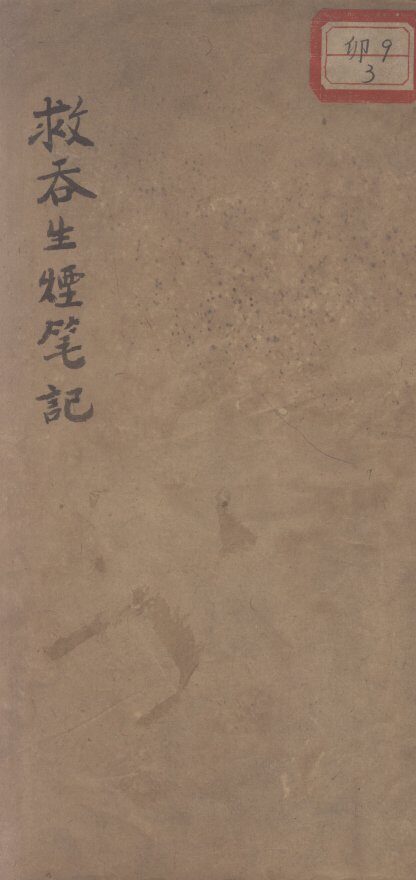 救吞生煙笔記
卯9
3